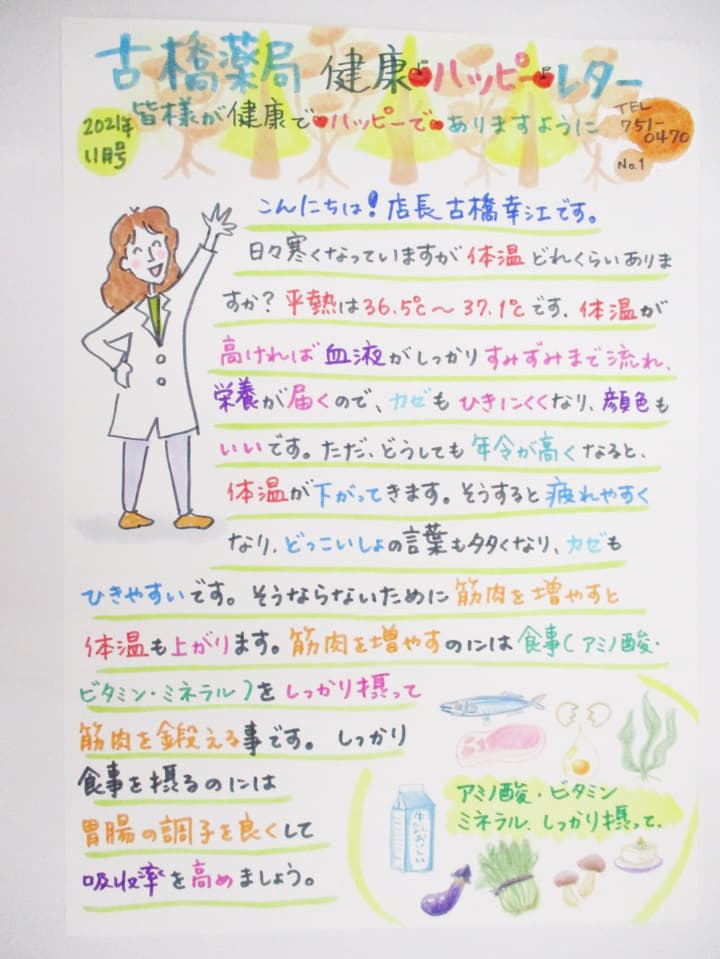 古橋薬局 健康ハッピーレター
2021年
11月号
皆様が健康でハッピーでありますように
TEL
751-
0470
No.1
こんにちは!店長古橋幸江です。
日々寒くなっていますが体温どれくらいありま
すか?平熱は36.5℃～37.1℃です.体温が
高ければ血液がしっかりすみずみまで流れ、
栄養が届くので、カゼもひきにくくなり、顔色も
いいです。ただ、どうしても年令が高くなると、
体温が下がってきます。そうすると疲れやすく
なり、どっこいしょの言葉も多くなり、カゼも
ひきやすいです。そうならないために筋肉を増やすと
体温も上がります。筋肉を増やすのには食事(アミノ酸・
ビタミン・ミネラル)をしっかり摂って
筋肉を鍛える事です。しっかり
食事を摂るのには
胃腸の調子を良くして
吸収率を高めましょう。
アミノ酸・ビタミン
ミネラル、しっかり摂って、
牛乳
おいしい